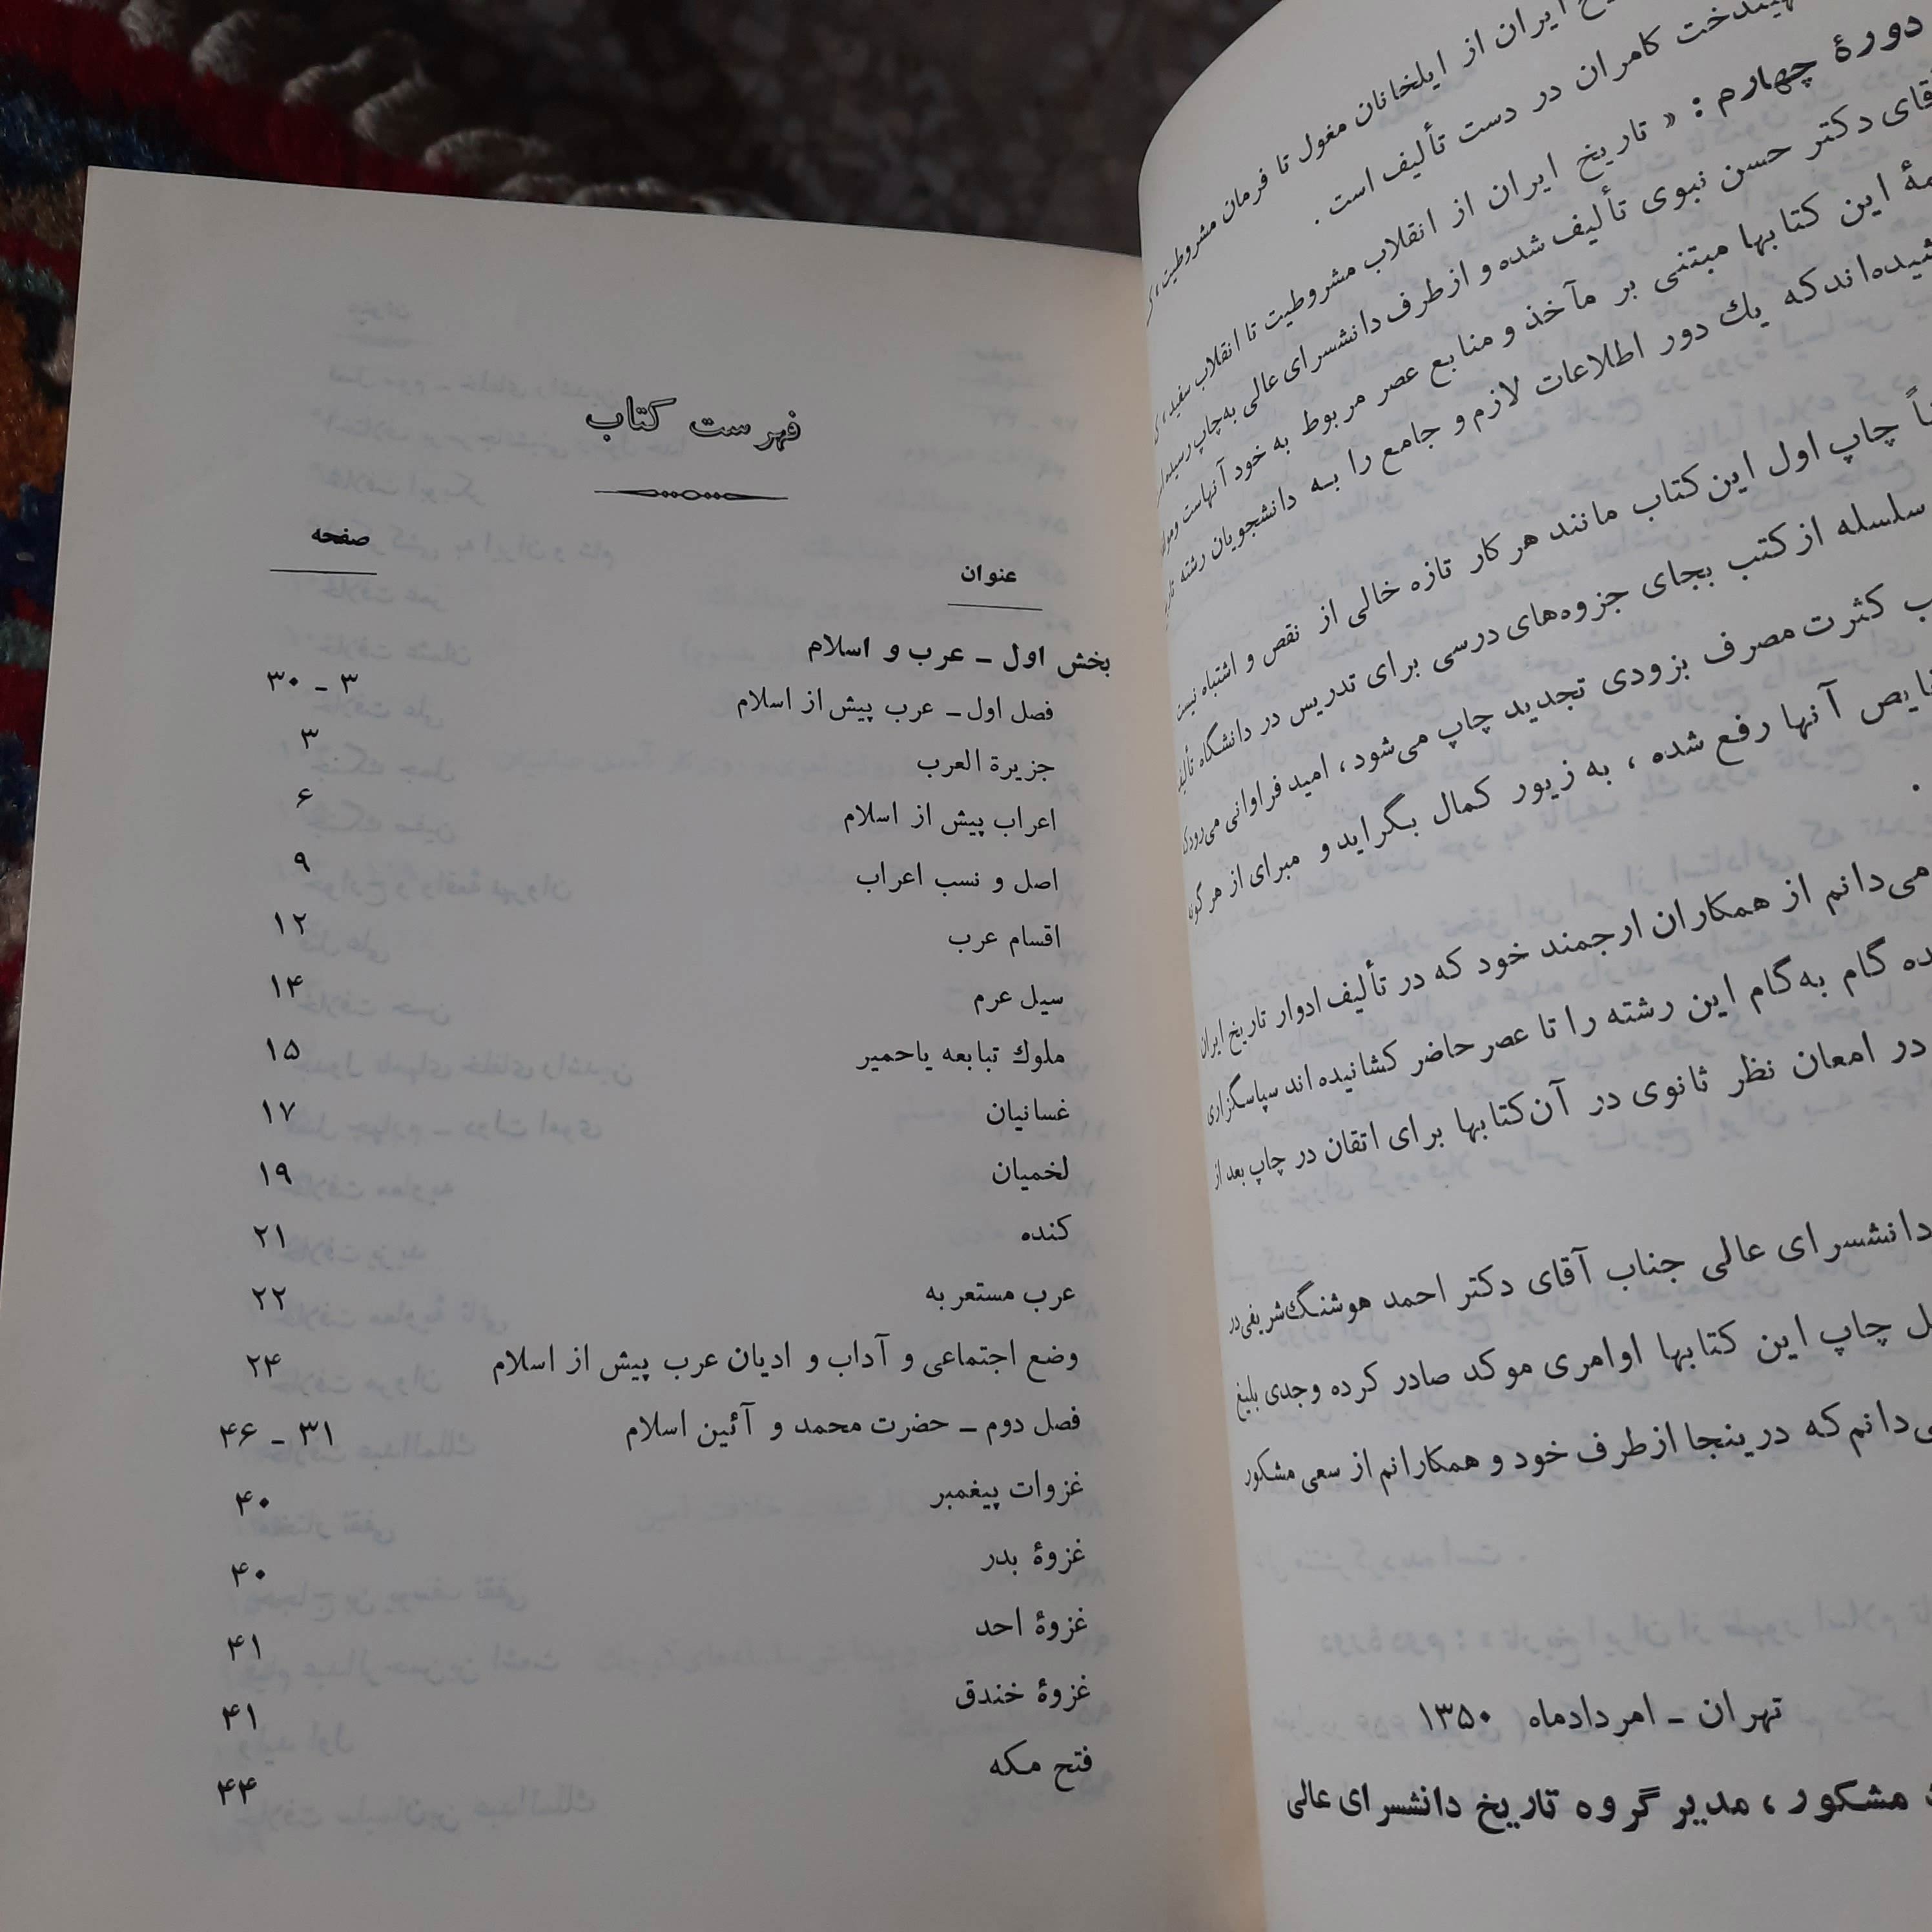 ایران از ایلخانان مغول تا فرمان مشروطیت،
کامران در دست تألیف است .
دورهٔ چهارم : « تاریخ ایران از انقلاب مشروطیت تا انقلاب سفید،
آقای دکتر حسن نبوی تألیف شده و از طرف دانشسرای عالی به‌چاپ رسیده
این کتابها مبتنی بر مآخذ و منابع عصر مربوط به خود آنهاست و
که یك دور اطلاعات لازم و جامع را به دانشجویان رشته
چاپ اول این کتاب مانند هر کار تازه خالی از نقص و اشتباه نیست
سلسله از کتب بجای جزوه‌های درسی برای تدریس در دانشگاه
کثرت مصرف بزودی تجدید چاپ می‌شود، امید فراوانی
آنها رفع شده ، به زیور کمال بگراید و مبرای از هر
.
می‌دانم از همکاران ارجمند خود که در تألیف ادوار تاریخ ایران
گام به‌گام این رشته را تا عصر حاضر کشانیده‌اند سپاسگزاری
در امعان نظر ثانوی در آن کتابها برای اتقان در چاپ بعد از
دانشسرای عالی جناب آقای دکتر احمد هوشنگ شریفی در
چاپ این کتابها اوامری موکد صادر کرده وجدی بلیغ
می‌دانم که درینجا از طرف خود و همکارانم از سعی مشکور
تهران ـ امردادماه ۱۳۵۰
مشکور ، مدیر گروه تاریخ دانشسرای عالی
فهرست کتاب
عنوان صفحه
بخش اول ـ عرب و اسلام
فصل اول ـ عرب پیش از اسلام ۳ ـ ۳۰
جزیرة العرب ۳
اعراب پیش از اسلام ۶
اصل و نسب اعراب ۹
اقسام عرب ۱۲
سیل عرم ۱۴
ملوك تبابعه یاحمیر ۱۵
غسانیان ۱۷
لخمیان ۱۹
کنده ۲۱
عرب مستعربه ۲۲
وضع اجتماعی و آداب و ادیان عرب پیش از اسلام ۲۴
فصل دوم ـ حضرت محمد و آئین اسلام ۳۱ ـ ۴۶
غزوات پیغمبر ۴۰
غزوهٔ بدر ۴۰
غزوهٔ احد ۴۱
غزوهٔ خندق ۴۱
فتح مکه ۴۴